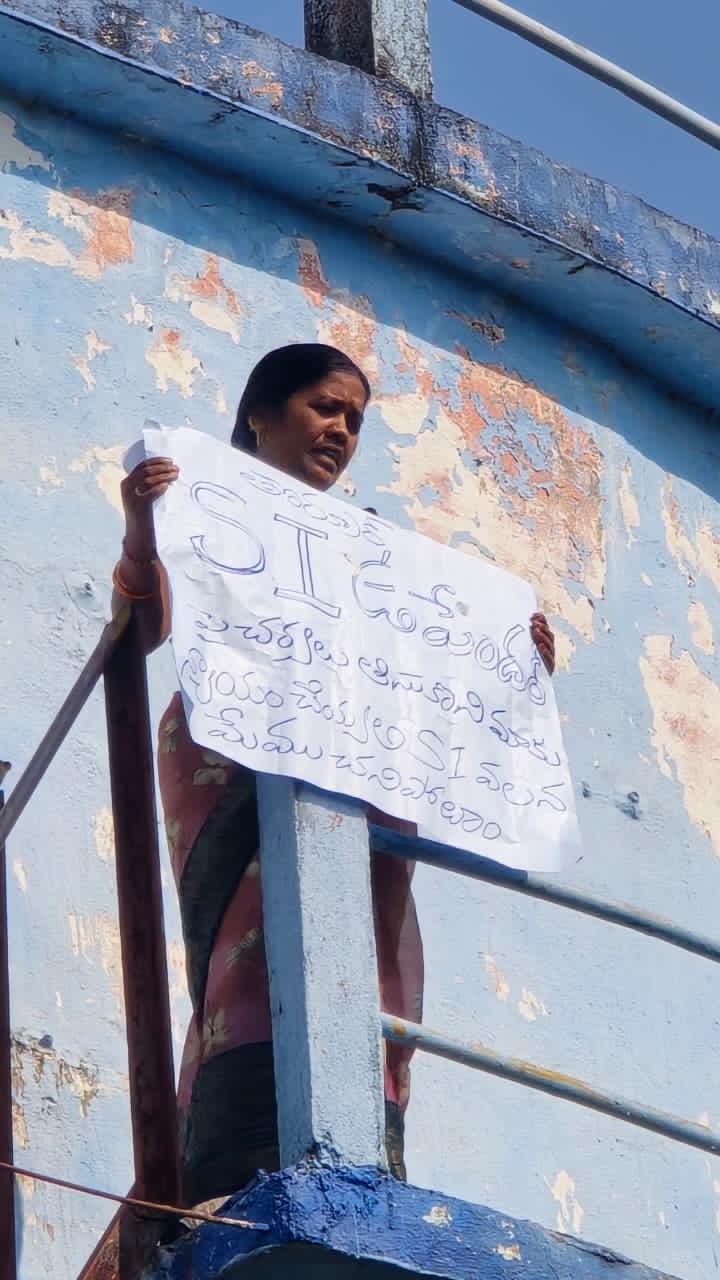 SI ఉపేందర్
పై చర్యలు తీసుకొని మాకు
న్యాయం చెయ్యాలి SI వలన
మేము చనిపోతాం